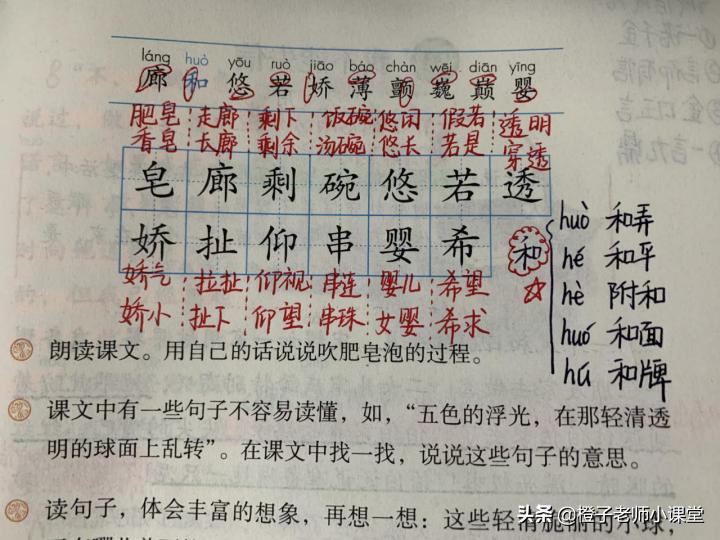 láng huò yōu ruò jiāo báo chàn wēi diān yīng
廊 和 悠 若 娇 薄 颤 巍 巅 婴
肥皂 走廊 剩下 饭碗 悠闲 假若 透明
香皂 长廊 剩余 汤碗 悠长 若是 穿透
皂 廊 剩 碗 悠 若 透
娇 扯 仰 串 婴 希
娇气 拉扯 仰视 串连 婴儿 希望
娇小 扯下 仰望 串珠 女婴 希求
和
huò 和弄
hé 和平
hè 附和
huó 和面
hú 和牌
朗读课文。用自己的话说说吹肥皂泡的过程。
课文中有一些句子不容易读懂，如，“五色的浮光，在那轻清透
明的球面上乱转”。在课文中找一找，说说这些句子的意思。
读句子，体会丰富的想象，再想一想：这些轻清脆丽的小球，
头条 @橙子老师小课堂